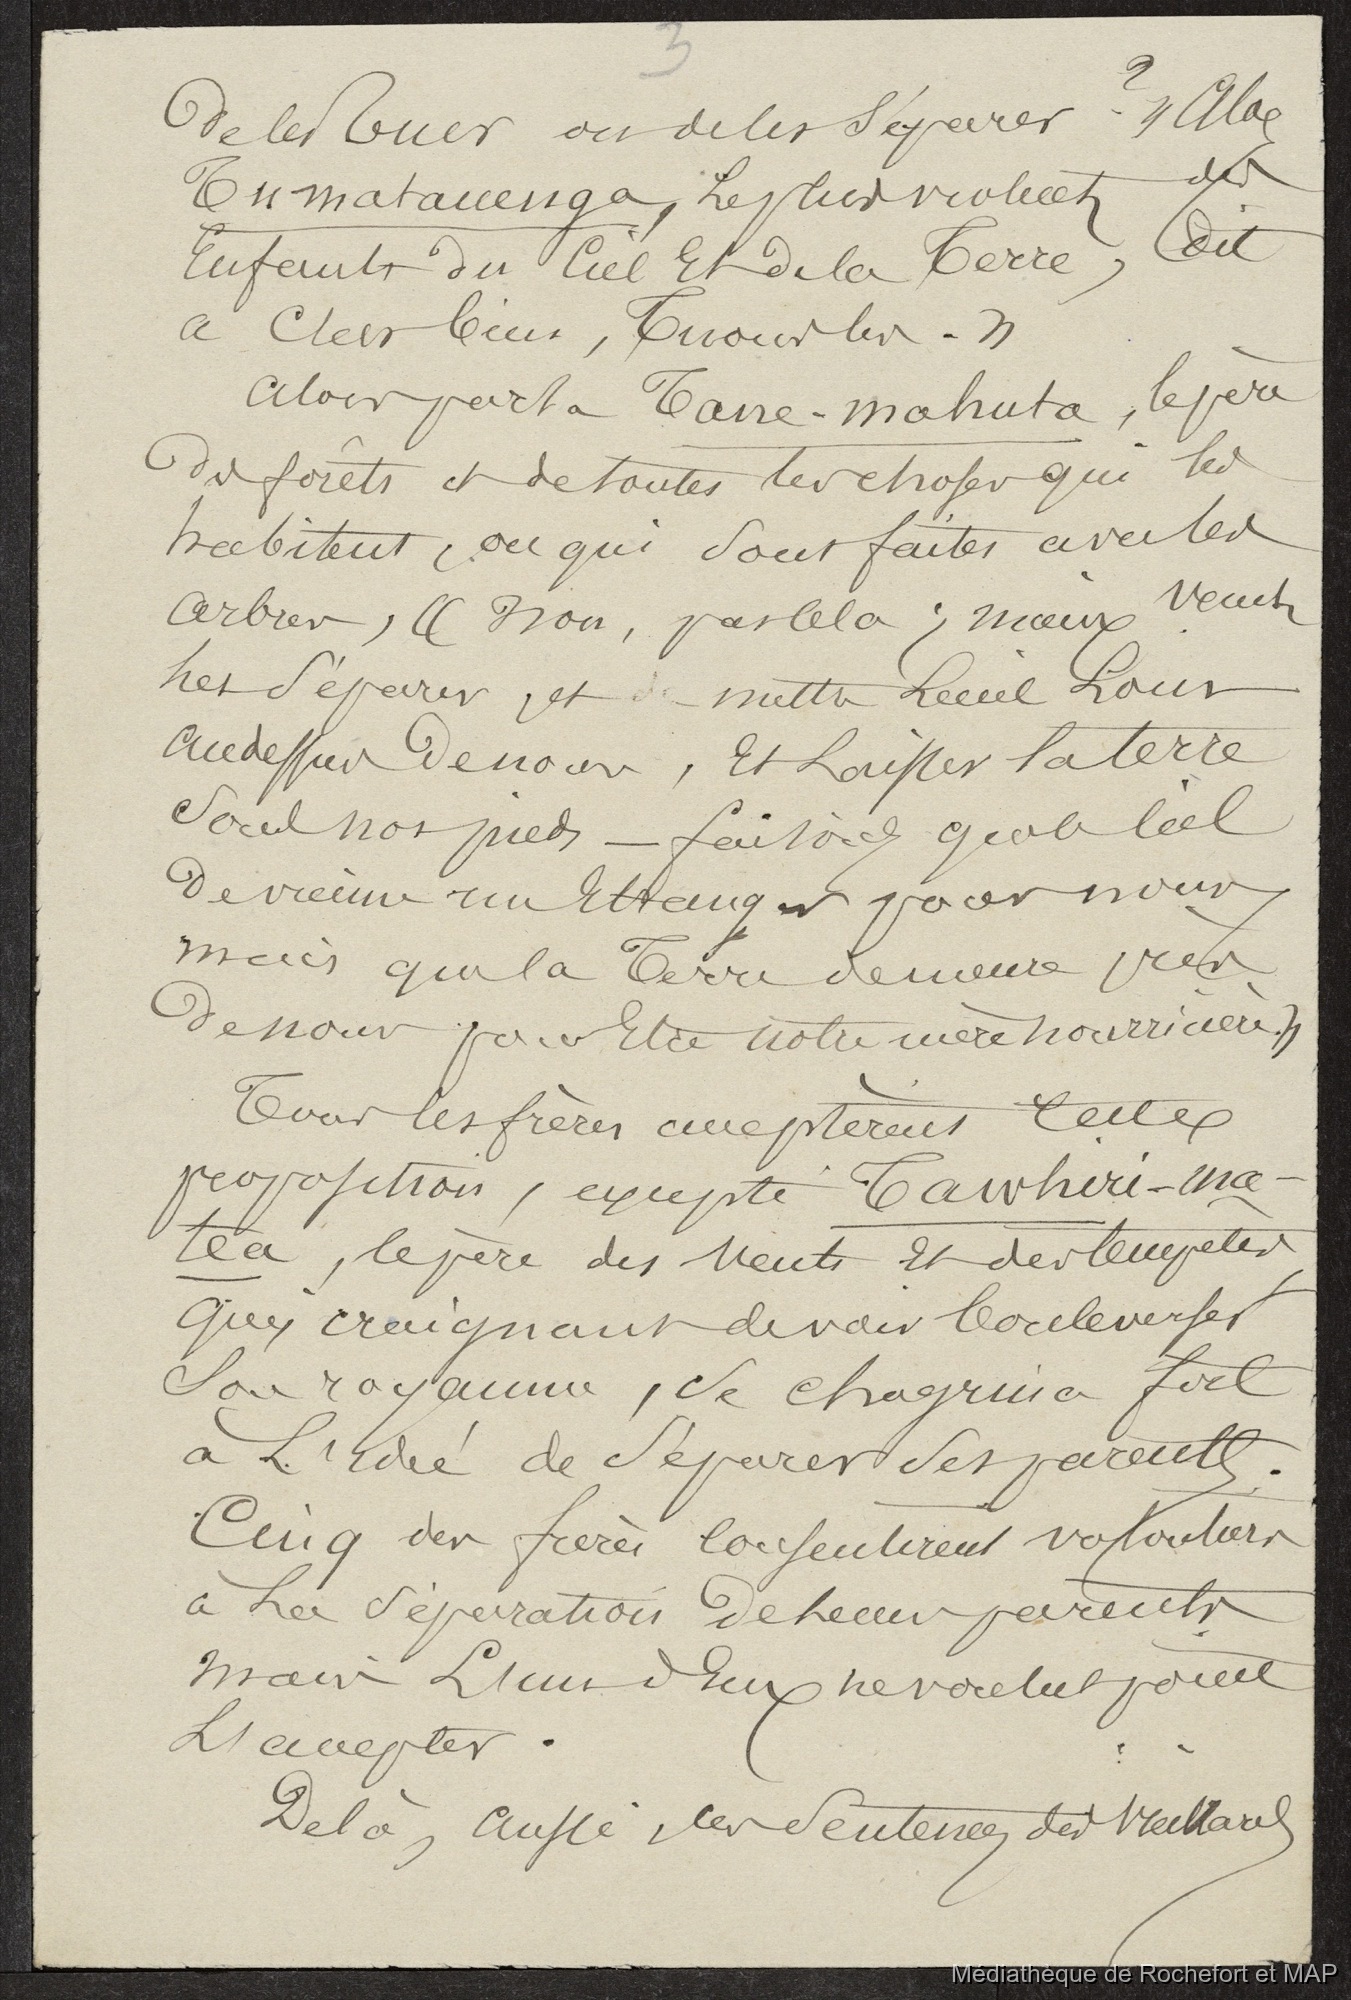 3
De les tuer ou de les séparer ? » Alors
Tumatauenga, le plus violent des
Enfants du Ciel Et de la Terre, dit
a Chers tiens, Tuons les - »
Alors parla Tane-mahuta, le père
Des forêts et de toutes les choses qui les
habitent, ou qui sont faites avec les
arbres, « Non, pas cela ; mieux veut
les séparer, et de mettre le ciel Loin
audessus De nous, Et Laisser la terre
Sous nos pieds — faisons que le Ciel
Devienne un Etranger pour nous,
mais que la Terre demeure près
De nous pour Etre notre mère nourricière »
Tous les frères acceptèrent cette
proposition, excepté Tawhiri-ma-
tea, le père des Vents Et des tempêtes
qui, craignant de voir bouleverser
Son royaume, se chagrina fort
a L'idée de séparer ses parents.
Cinq des frères consentirent volontiers
a La séparation De leurs parents
mais L'un d'Eux ne voulut point
L'accepter.
De là, aussi, les Sentences des Vieillards
Médiathèque de Rochefort et MAP